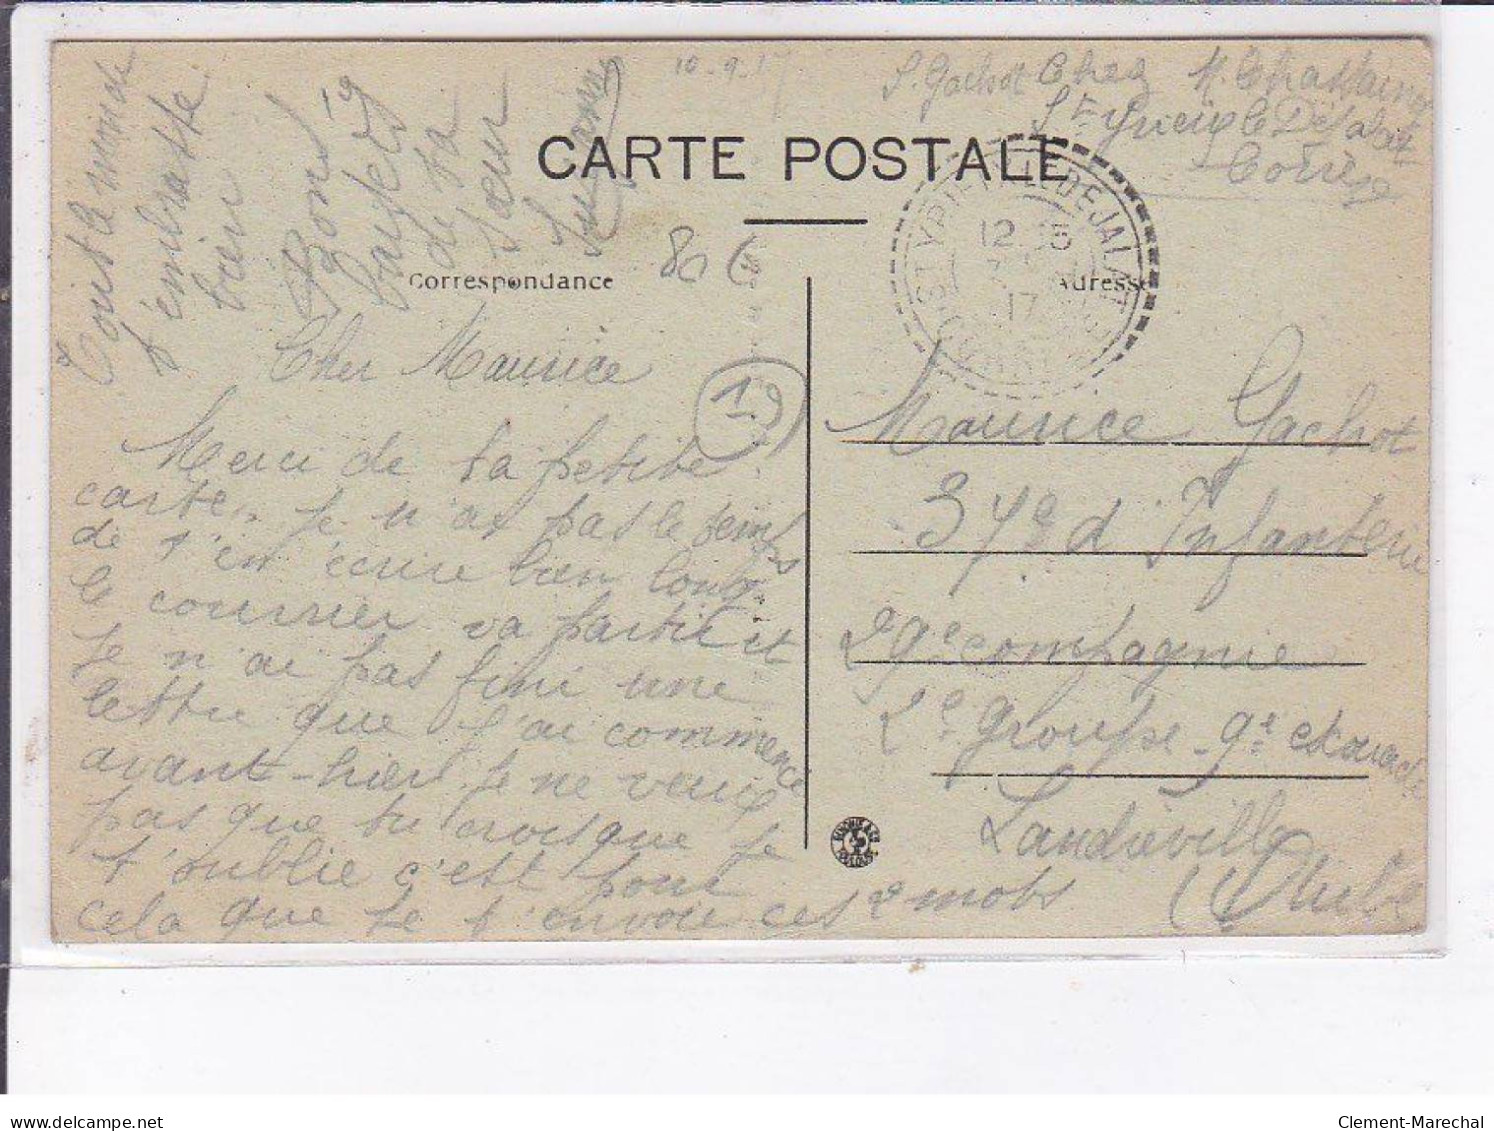 10-9-17
S. Gachot Chez M. Chastaing
St Yrieix le Déjalat
Corrèze
CARTE POSTALE
ST YRIEIX LE DEJALAT
12 15
17
CORREZE
Correspondance
Adresse
80
19
Cher Maurice
Merci de ta petite
carte, je n'ai pas le temps
de t'en écrire bien long
le courrier va partir et
je n'ai pas fini une
lettre que j'ai commencé
avant-hier. Je ne veux
pas que tu crois que je
t'oublie c'est pour
cela que je t'envoie ces 2 mots
Tout le monde
t'embrasse
bien
Bons
baisers
de ta
sœur
Suzanne
Maurice Gachot
37e d'Infanterie
29e compagnie
2e Groupe - 9e escouade
Landréville
(Aube
LABOUCHE
TOULOUSE
Clement-Marechal